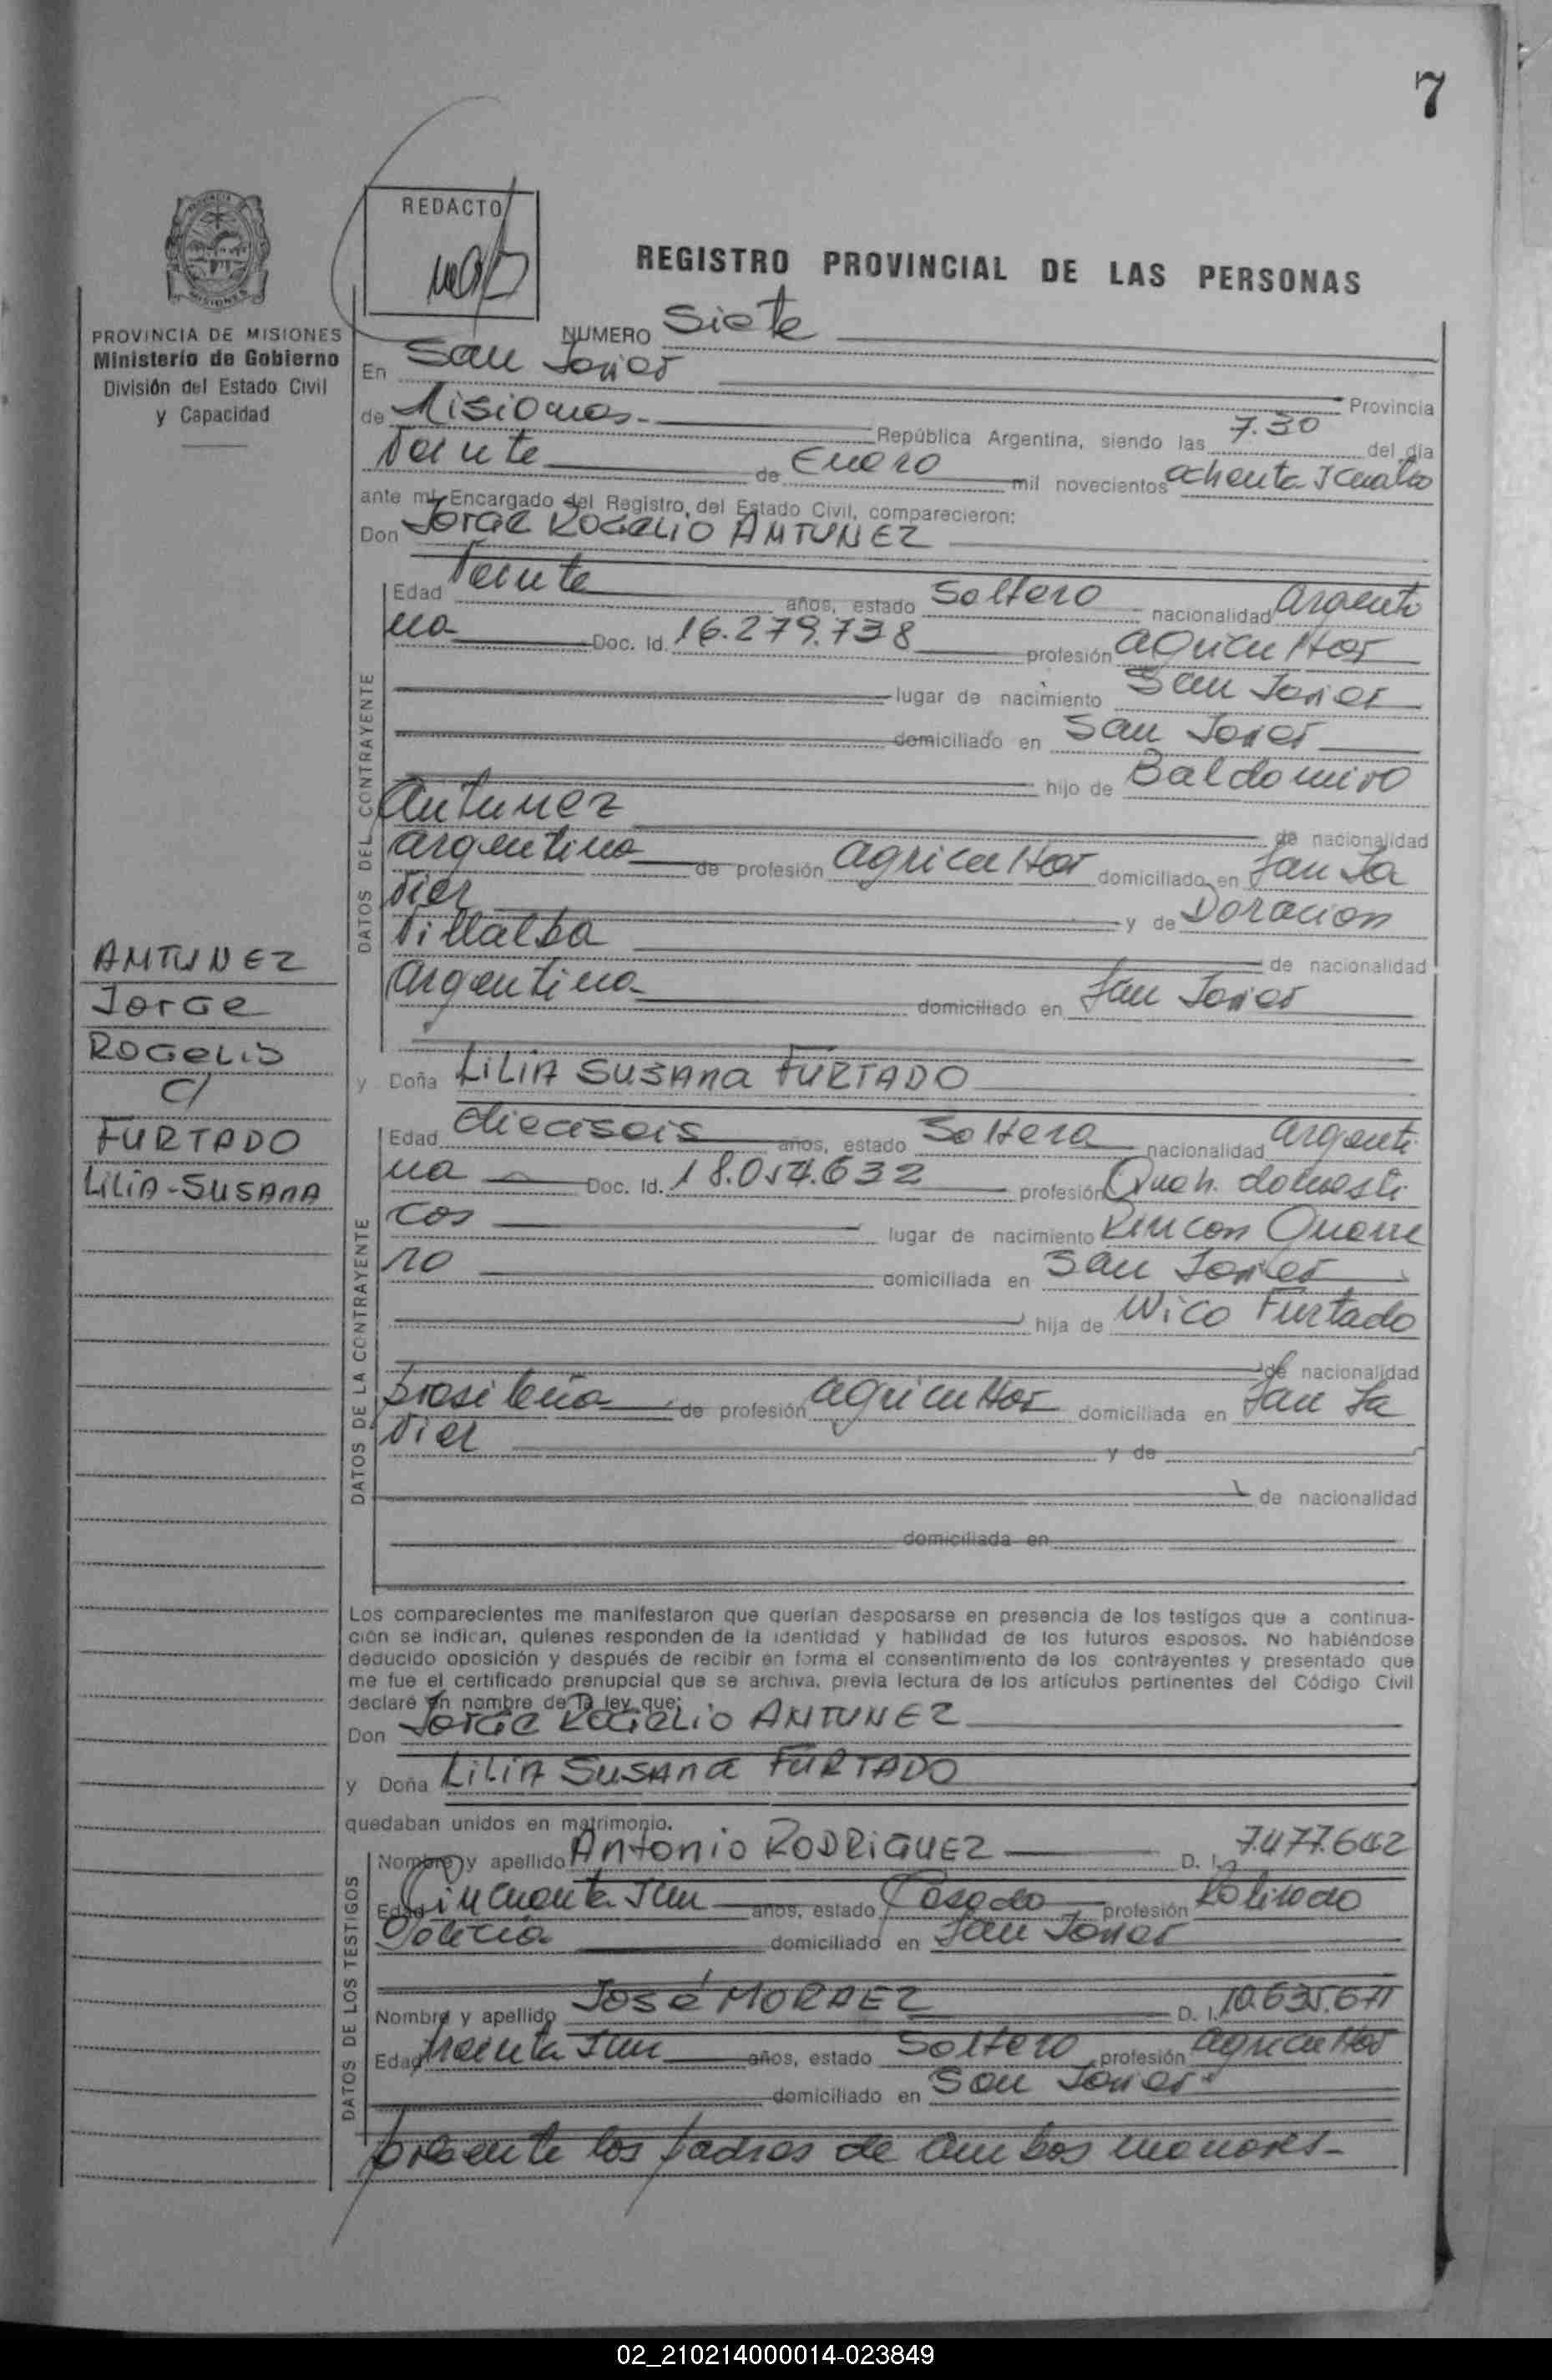 7
REDACTO
REGISTRO PROVINCIAL DE LAS PERSONAS
PROVINCIA DE MISIONES
Ministerio de Gobierno
División del Estado Civil
y Capacidad
NUMERO Siete
En San Javier
Provincia
de Misiones República Argentina, siendo las 7.30 del día
Veinte de Enero mil novecientos ochenta y cuatro
ante mi, Encargado del Registro del Estado Civil, comparecieron:
Don Jorge Rogelio ANTUNEZ
DATOS DEL CONTRAYENTE
Edad Veinte años, estado Soltero nacionalidad Argenti
na Doc. Id. 16.279.738 profesión agricultor
lugar de nacimiento San Javier
domiciliado en San Javier
hijo de Baldomiro
Antunez de nacionalidad
argentina de profesión agricultor domiciliado en San Ja
vier y de Doracion
Villalba de nacionalidad
argentina domiciliado en San Javier
ANTUNEZ
Jorge
ROGELIO
C/
FURTADO
LILIA-SUSANA
y Doña LILIA SUSANA FURTADO
DATOS DE LA CONTRAYENTE
Edad dieciseis años, estado Soltera nacionalidad argenti
na Doc. Id. 18.054.632 profesión Queh. domesti
cos lugar de nacimiento Rincon Guerre
ro domiciliada en San Javier
hija de Wico Furtado
de nacionalidad
brasileña de profesión agricultor domiciliada en San Ja
vier y de
de nacionalidad
domiciliada en
Los comparecientes me manifestaron que querían desposarse en presencia de los testigos que a continua-
ción se indican, quienes responden de la identidad y habilidad de los futuros esposos. No habiéndose
deducido oposición y después de recibir en forma el consentimiento de los contrayentes y presentado que
me fue el certificado prenupcial que se archiva, previa lectura de los artículos pertinentes del Código Civil
declaré en nombre de la ley que:
Don Jorge Rogelio ANTUNEZ
y Doña LILIA SUSANA FURTADO
quedaban unidos en matrimonio.
DATOS DE LOS TESTIGOS
Nombre y apellido Antonio RODRIGUEZ D. I. 7.477.642
Edad Cincuenta y un años, estado Casado profesión Retirado
Policia domiciliado en San Javier
Nombre y apellido José MORAEZ D. I. 10.635.671
Edad treinta y un años, estado Soltero profesión agricultor
domiciliado en San Javier
presente los padres de ambos menores-
02_210214000014-023849